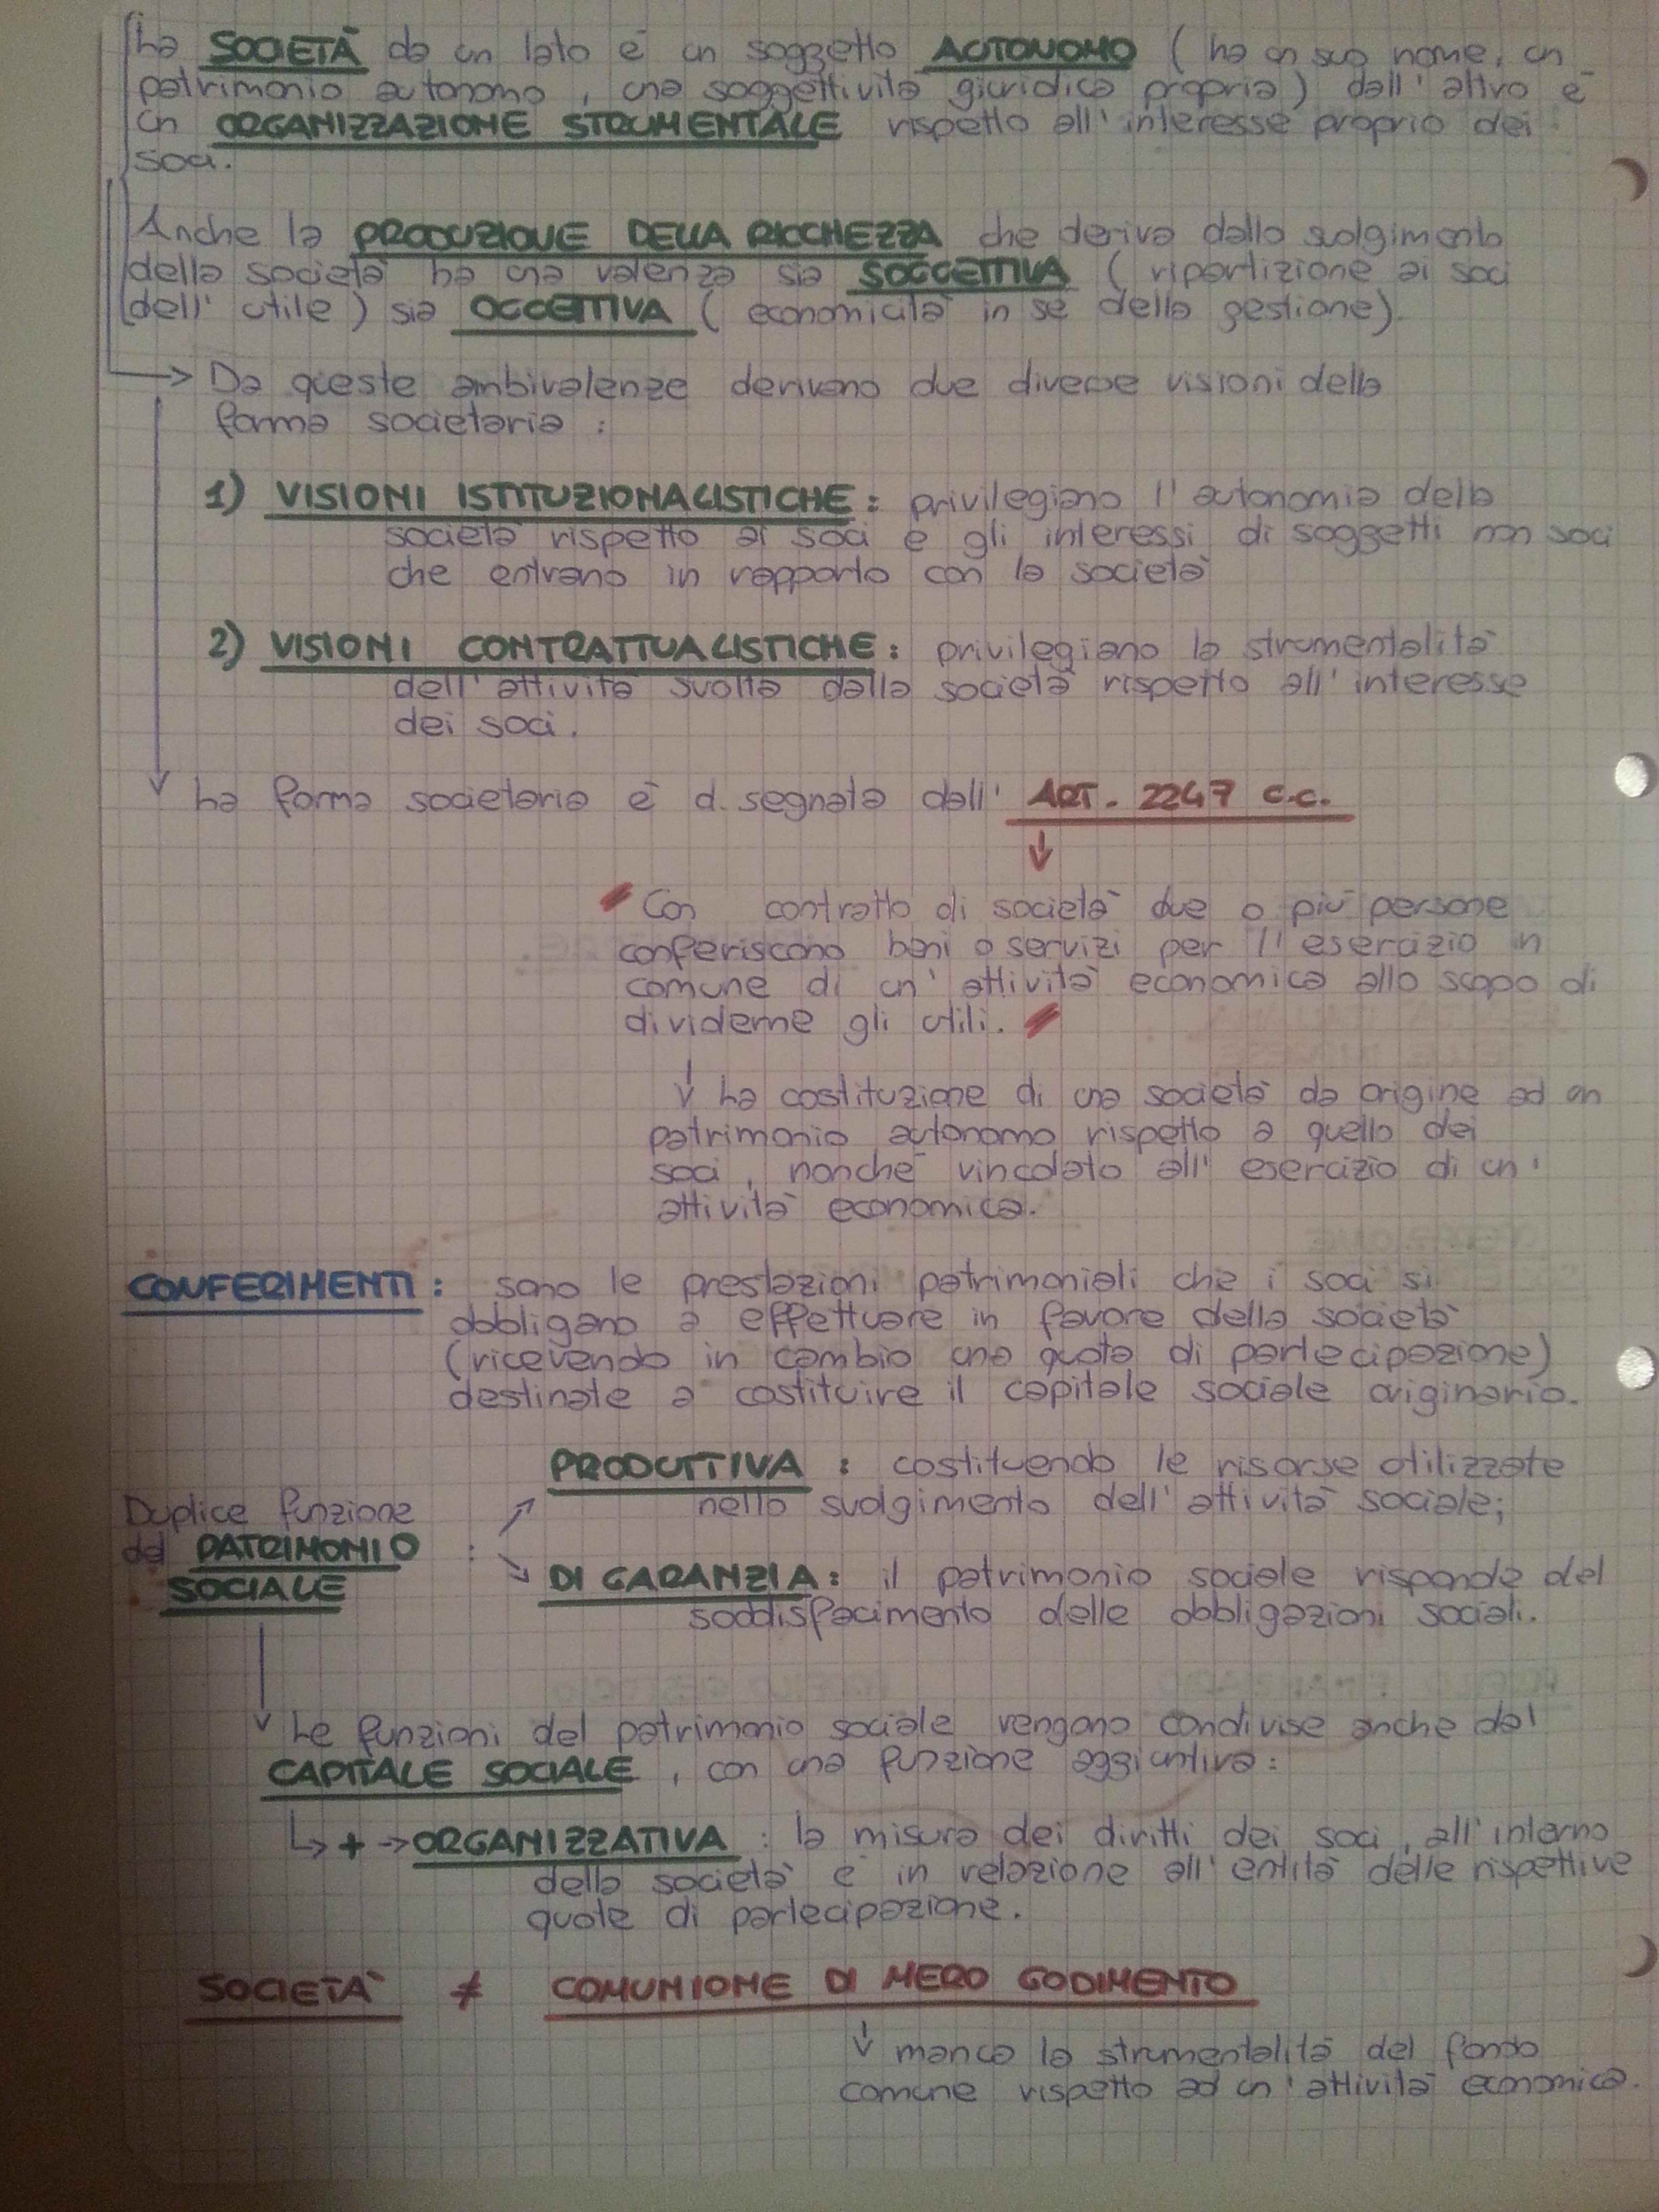 La SOCIETÀ da un lato è un soggetto AUTONOMO (ha un suo nome, un
patrimonio autonomo, una soggettività giuridica propria) dall'altro è
un ORGANIZZAZIONE STRUMENTALE rispetto all'interesse proprio dei
soci.
Anche la PRODUZIONE DELLA RICCHEZZA che deriva dallo svolgimento
della società ha una valenza sia SOGGETTIVA (ripartizione ai soci
dell'utile) sia OGGETTIVA (economicità in sé della gestione).
→ Da queste ambivalenze derivano due diverse visioni della
forma societaria:
1) VISIONI ISTITUZIONALISTICHE: privilegiano l'autonomia della
società rispetto ai soci e gli interessi di soggetti non soci
che entrano in rapporto con la società
2) VISIONI CONTRATTUALISTICHE: privilegiano la strumentalità
dell'attività svolta dalla società rispetto all'interesse
dei soci.
La forma societaria è disegnata dall' ART. 2247 c.c.
Con contratto di società due o più persone
conferiscono beni o servizi per l'esercizio in
comune di un'attività economica allo scopo di
dividerne gli utili.
La costituzione di una società da origine ad un
patrimonio autonomo rispetto a quello dei
soci, nonché vincolato all'esercizio di un'
attività economica.
CONFERIMENTI: sono le prestazioni patrimoniali che i soci si
obbligano a effettuare in favore della società
(ricevendo in cambio una quota di partecipazione)
destinate a costituire il capitale sociale originario.
PRODUTTIVA: costituendo le risorse utilizzate
nello svolgimento dell'attività sociale;
Duplice funzione
del PATRIMONIO
SOCIALE :
DI GARANZIA: il patrimonio sociale risponde del
soddisfacimento delle obbligazioni sociali.
Le funzioni del patrimonio sociale vengono condivise anche dal
CAPITALE SOCIALE, con una funzione aggiuntiva:
+ → ORGANIZZATIVA: la misura dei diritti dei soci, all'interno
della società è in relazione all'entità delle rispettive
quote di partecipazione.
SOCIETÀ ≠ COMUNIONE DI MERO GODIMENTO
manca la strumentalità del fondo
comune rispetto ad un'attività economica.